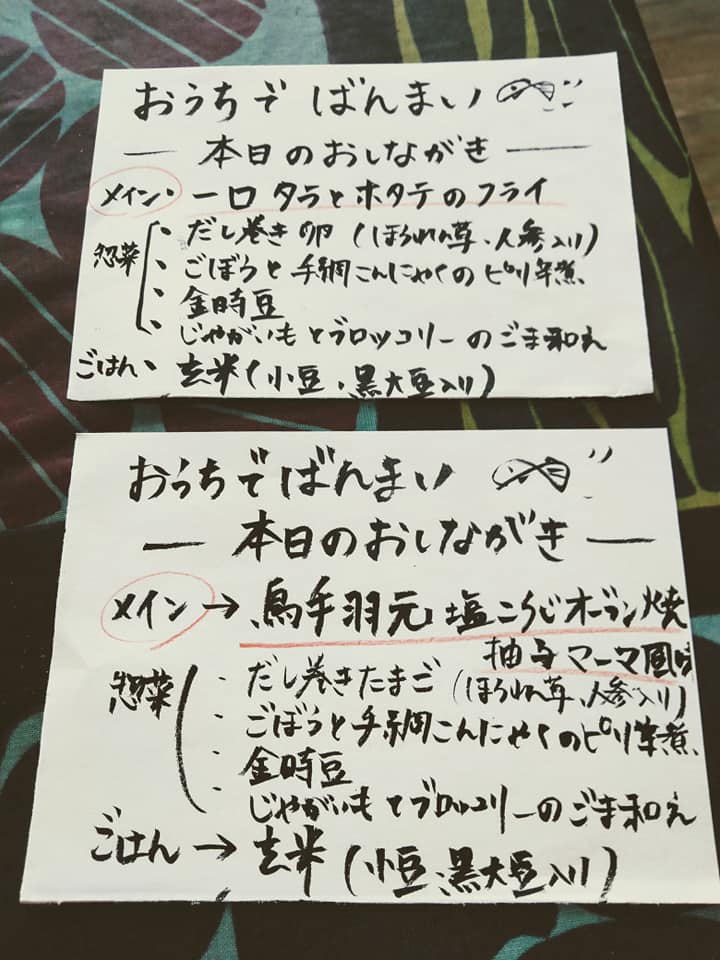 おうちで ばんまい
本日のおしながき
メイン・ 一口 タラとホタテのフライ
惣菜
・だし巻き卵 (ほうれん草、人参入り)
・ごぼうと手綱こんにゃくのピリ辛煮、
・金時豆
・じゃがいもとブロッコリーのごま和え
ごはん・ 玄米(小豆、黒大豆入り)
おうちでばんまい
本日のおしながき
メイン→ 鳥手羽元 塩こうじオーブン焼
柚子マーマ風味
惣菜
・だし巻きたまご (ほうれん草、人参入り)
・ごぼうと手綱こんにゃくのピリ辛煮、
・金時豆
・じゃがいもとブロッコリーのごま和え
ごはん→ 玄米 (小豆、黒大豆入り)